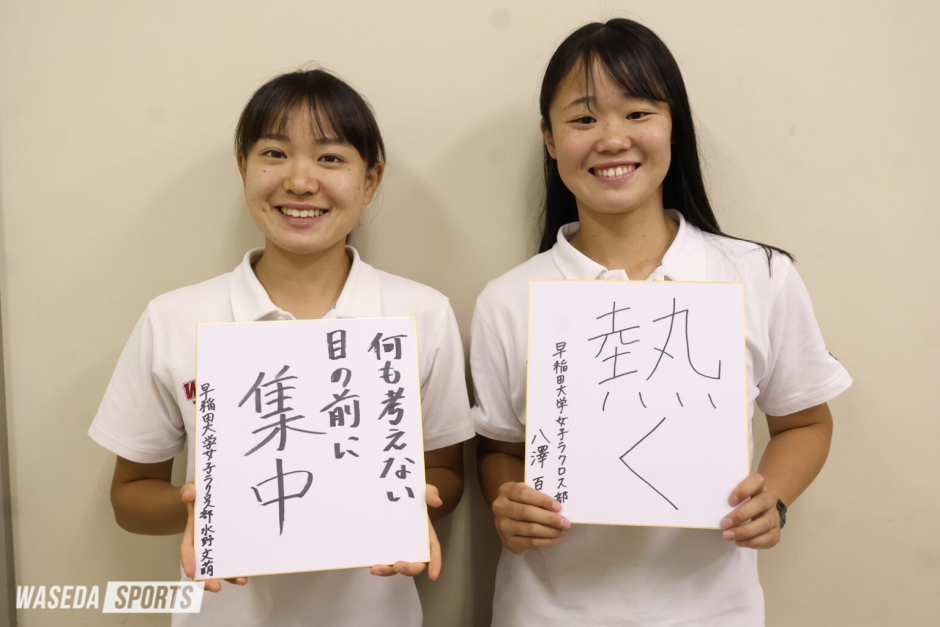 何も考えない
目の前に
集中
早稲田大学女子ラクロス部 水野文萌
熱く
早稲田大学女子ラクロス部
八澤百
W
WASEDA SPORTS